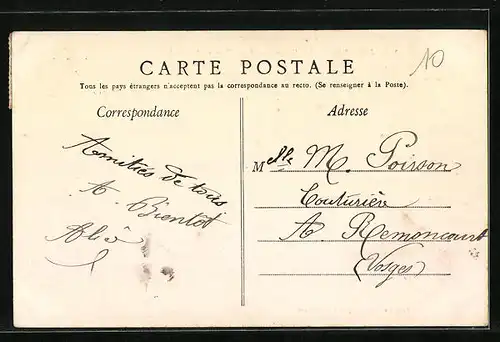 10
CARTE POSTALE
Tous les pays étrangers n'acceptent pas la correspondance au recto. (Se renseigner à la Poste).
Correspondance
Amitiés de tous
A. Bientôt
Adresse
Melle M. Poirson
Couturière
A. Remoncourt
(Vosges)